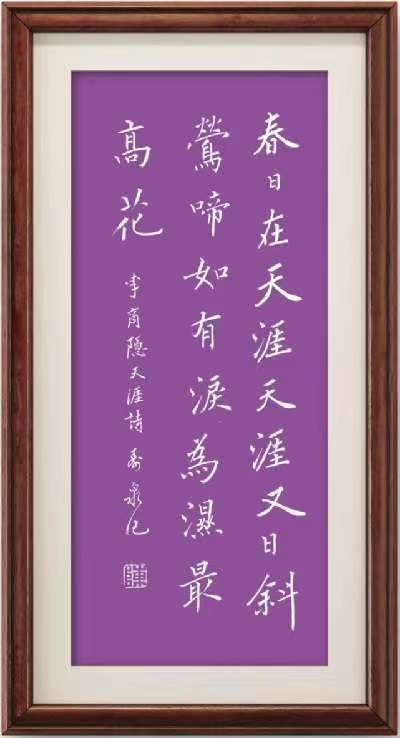 春日在天涯天涯又日斜
鶯啼如有淚為濕最
高花
李商隱天涯詩 壽泉之
陳